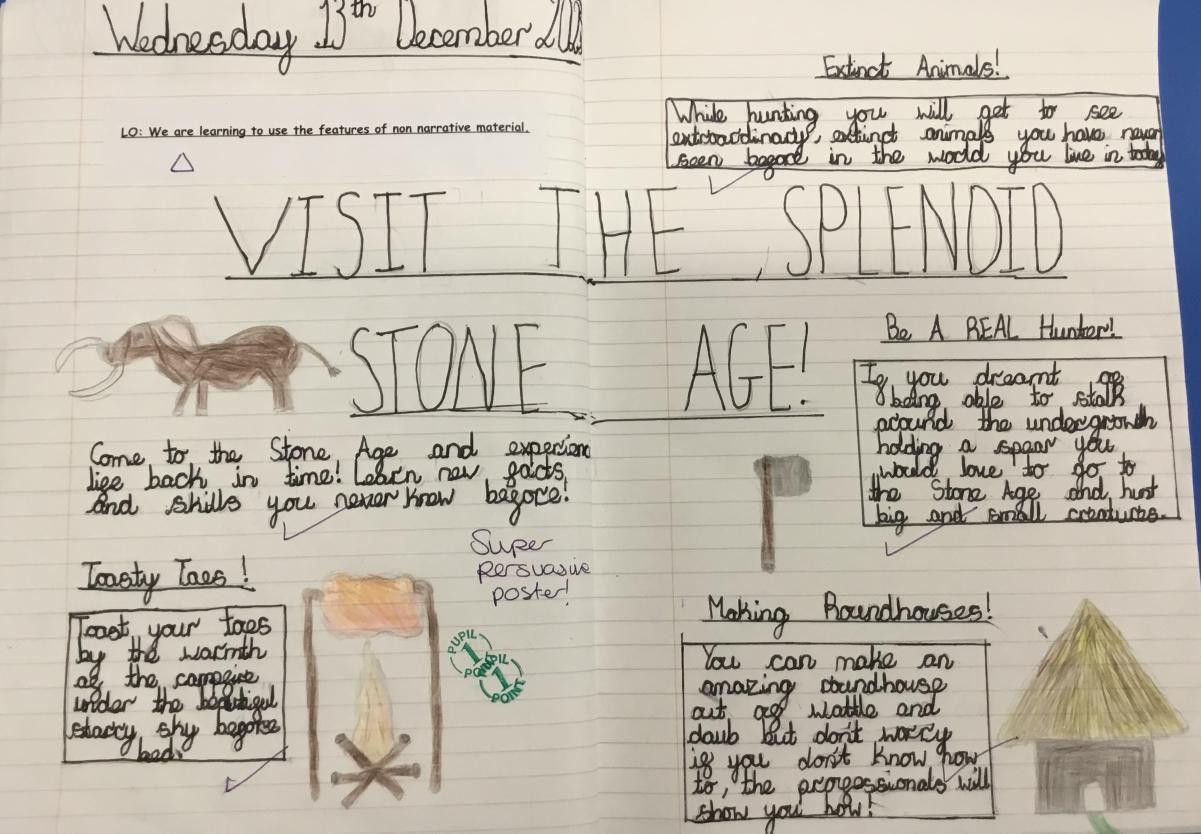 Wednesday 13th December
LO: We are learning to use the features of non narrative material.
Extinct Animals!
While hunting you will get to see
extraordinary, extinct animals you have never
seen before in the world you live in today
VISIT THE SPLENDID
STONE AGE!
Come to the Stone Age and experien
life back in time! Learn new facts,
and skills you never knew before!
Super
persuasive
poster!
Toasty Toes!
Toast your toes
by the warmth
of the campfire
under the beautiful
starry sky before
bed.
PUPIL
1
POINT
PUPIL
1
POINT
Be A REAL Hunter!
If you dreamt of
being able to stalk
around the undergrowth
holding a spear you
would love to go to
the Stone Age and hunt
big and small creatures.
Making Roundhouses!
You can make an
amazing roundhouse
out of wattle and
daub but don't worry
if you don't know how
to, the professionals will
show you how!